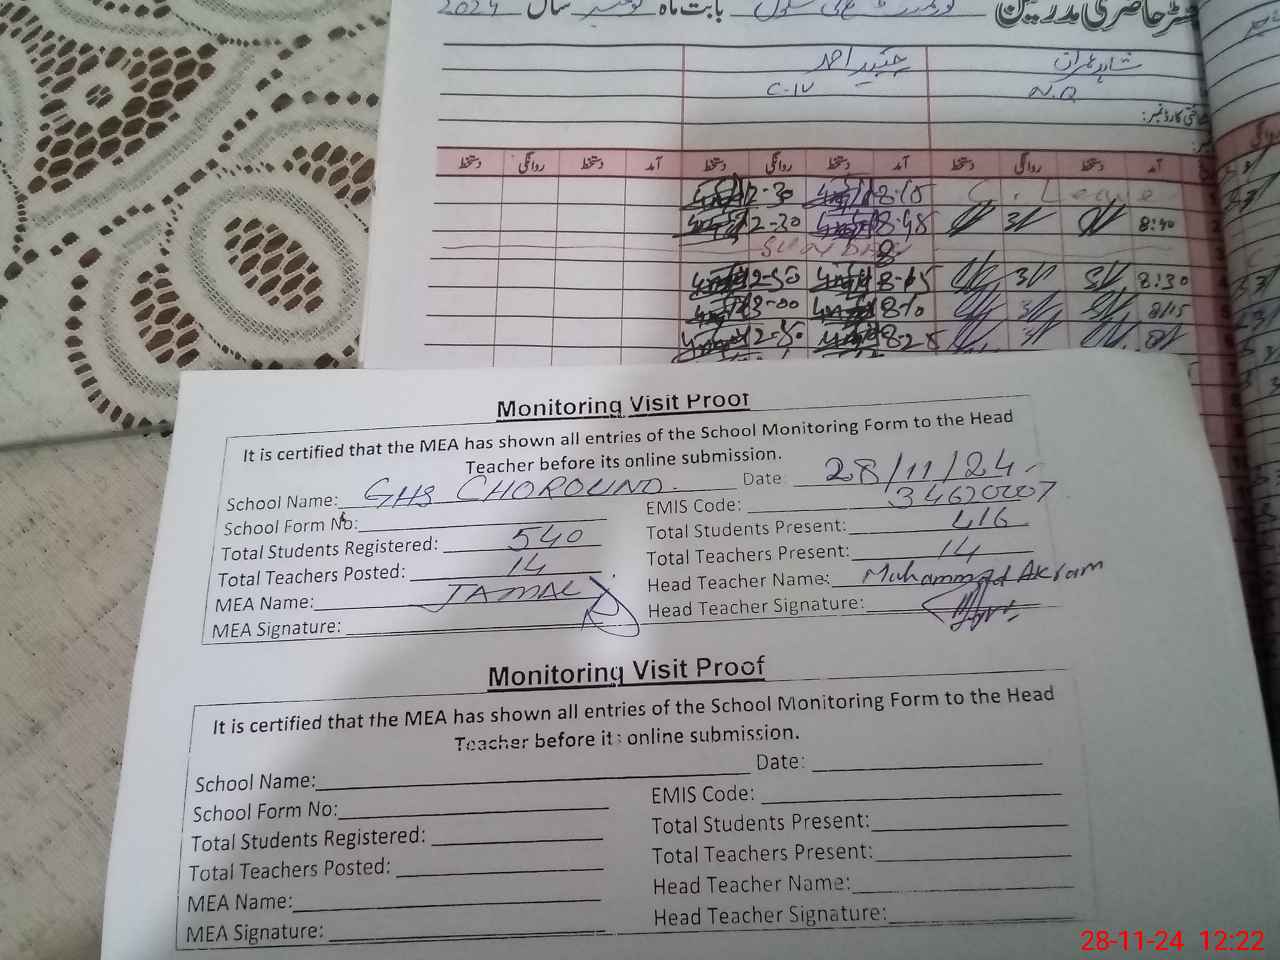 حاضری مدرسین بابت ماہ نومبر سال 2024
جنید احمد
C-IV N.Q
آمد دستخط روانگی دستخط آمد دستخط روانگی دستخط
8-15 12-30 C. Leave
8-45 2-30 8:40
SUNDAY
8-15 8:30
3-00 8-10 8/15
8-25
Monitoring Visit Proof
It is certified that the MEA has shown all entries of the School Monitoring Form to the Head
Teacher before its online submission.
School Name: GHS CHOROUND. Date: 28/11/24
School Form No: EMIS Code: 34620007
Total Students Registered: 540 Total Students Present: 416
Total Teachers Posted: 14 Total Teachers Present: 14
MEA Name: JAMAL Head Teacher Name: Muhammad Akram
MEA Signature: Head Teacher Signature:
Monitoring Visit Proof
It is certified that the MEA has shown all entries of the School Monitoring Form to the Head
Teacher before its online submission.
School Name: Date:
School Form No: EMIS Code:
Total Students Registered: Total Students Present:
Total Teachers Posted: Total Teachers Present:
MEA Name: Head Teacher Name:
MEA Signature: Head Teacher Signature:
28-11-24 12:22